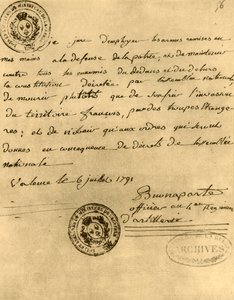 56
je jure d'employer les armes remises en
mes mains a la defense de la patrie, et de maintenir
contre tous les ennemis du dedans et du dehors
la constitution décretée par l'assemblée nationale
de mourir plutôt que de souffrir l'invasion
du territoire français, par des troupes etrange
res; et de n'obeir qu'aux ordres qui seront
donnés en consequence de décrets de l'assemblée
nationale
Valence le 6 juillet 1791
Buonaparte
officier au 4me Regiment
d'artillerie
ARCHIVES